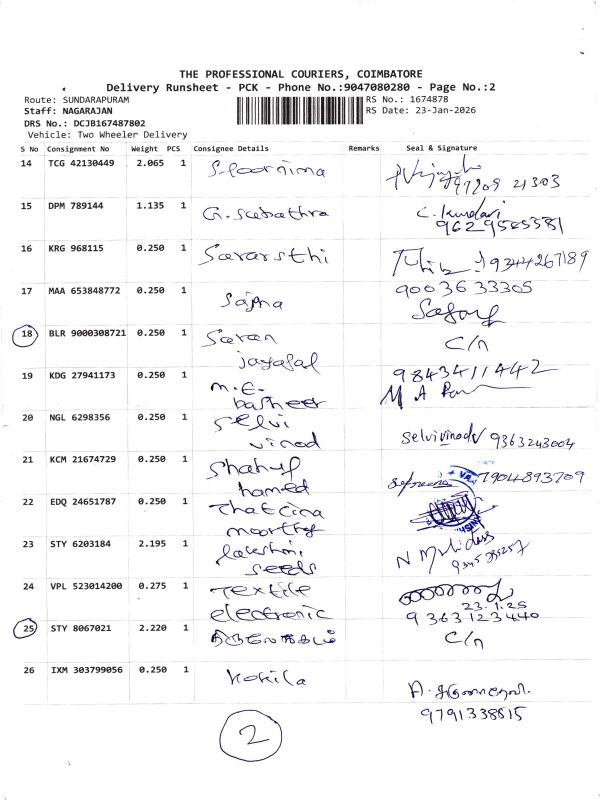 THE PROFESSIONAL COURIERS, COIMBATORE
Delivery Runsheet - PCK - Phone No.:9047080280 - Page No.:2
Route: SUNDARAPURAM RS No.: 1674878
Staff: NAGARAJAN RS Date: 23-Jan-2026
DRS No.: DCJB167487802
Vehicle: Two Wheeler Delivery
S No Consignment No Weight PCS Consignee Details Remarks Seal & Signature
14 TCG 42130449 2.065 1 S. Poornima
97209 21303
15 DPM 789144 1.135 1 G. Sabathra C. Kumari
9629565581
16 KRG 968115 0.250 1 Sararsthi 9344267189
17 MAA 653848772 0.250 1 Sajna 90036 33305
18 BLR 9000308721 0.250 1 Saran
jayafal C/n
19 KDG 27941173 0.250 1 M.E. 9843411442
basheer
20 NGL 6298356 0.250 1 Selvi
vinod selvivinodv 9363243004
21 KCM 21674729 0.250 1 Shahuf 7904893709
hamed
22 EDQ 24651787 0.250 1 Thatcina
moorthy
23 STY 6203184 2.195 1 Lakshmi
seeds
24 VPL 523014200 0.275 1 Textile
electronic 23.1.25
9363123440
25 STY 8067021 2.220 1 C/n
26 IXM 303799056 0.250 1 Kokila
9791338815
2